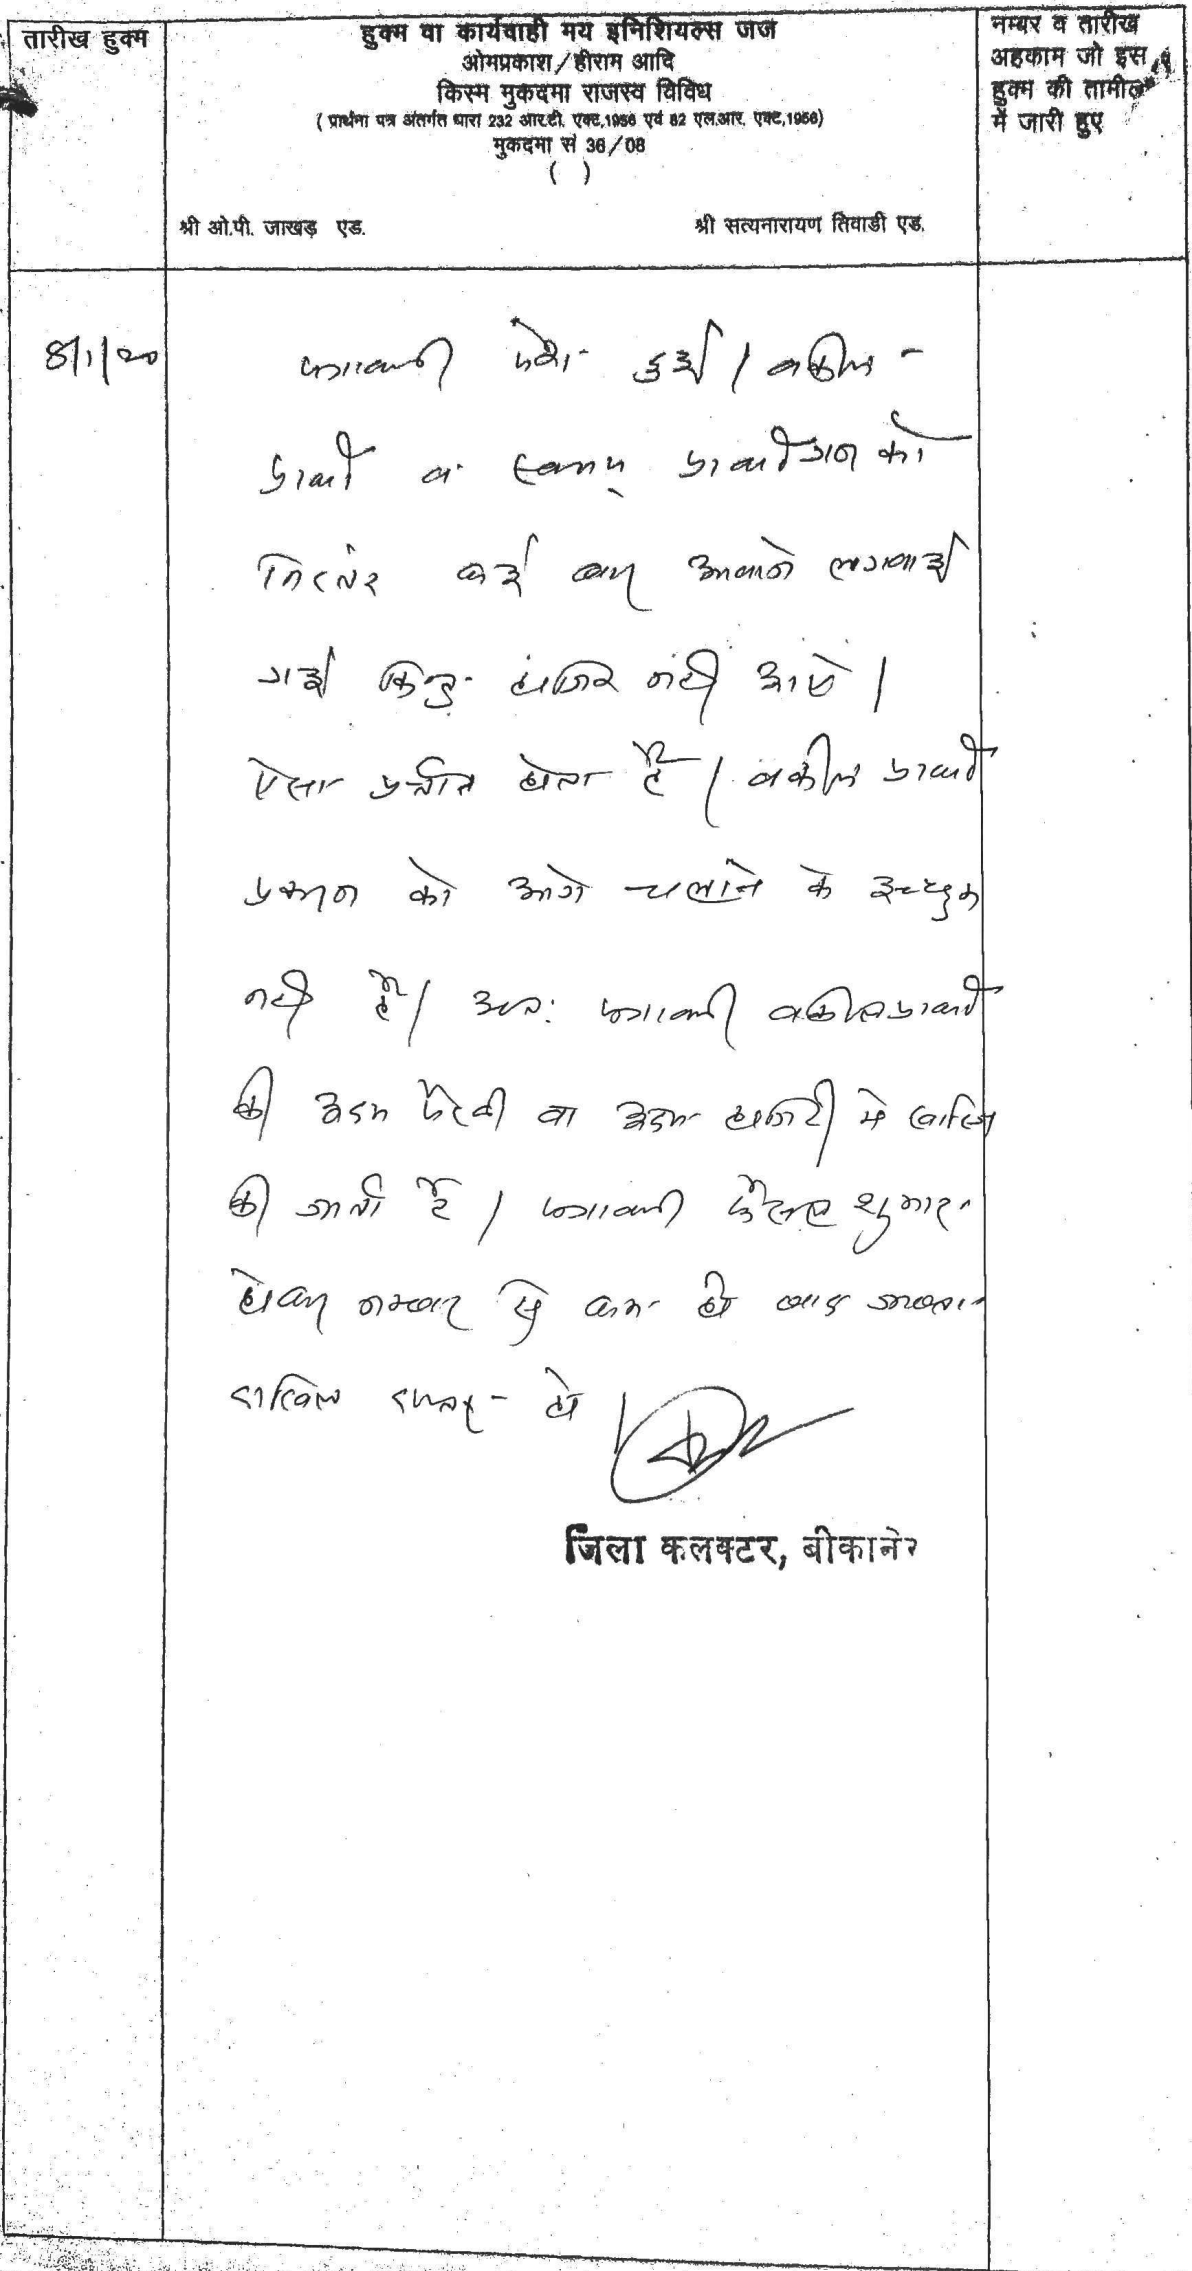 तारीख हुक्म
हुक्म वा कार्यवाही मय इनिशियल्स जज
ओमप्रकाश/हीराम आदि
किस्म मुकदमा राजस्व विविध
( प्रार्थना पत्र अंतर्गत धारा 232 आर.टी. एक्ट,1956 एवं 82 एल.आर. एक्ट,1956)
मुकदमा सं 36/08
( )
श्री ओ.पी. जाखड़ एड. श्री सत्यनारायण तिवाडी एड.
नम्बर व तारीख
अहकाम जो इस
हुक्म की तामील
में जारी हुए
8/1/20
पत्रावली पेश हुई। वकील
प्रार्थी व स्वयम् प्रार्थीगन को
निरन्तर कई बार आवाजे लगवाई
गई किन्तु हाजिर नही आये।
ऐसा प्रतीत होता है। वकील प्रार्थी
प्रकरण को आगे चलाने के इच्छुक
नही है। अतः पत्रावली वकील प्रार्थी
की अदम पैरवी वा अदम हाजिरी मे खारिज
की जाती है। पत्रावली फैसल शुमार
होकर नम्बर से कम हो बाद जाब्ता
दाखिल दफ्तर हो
जिला कलक्टर, बीकानेर